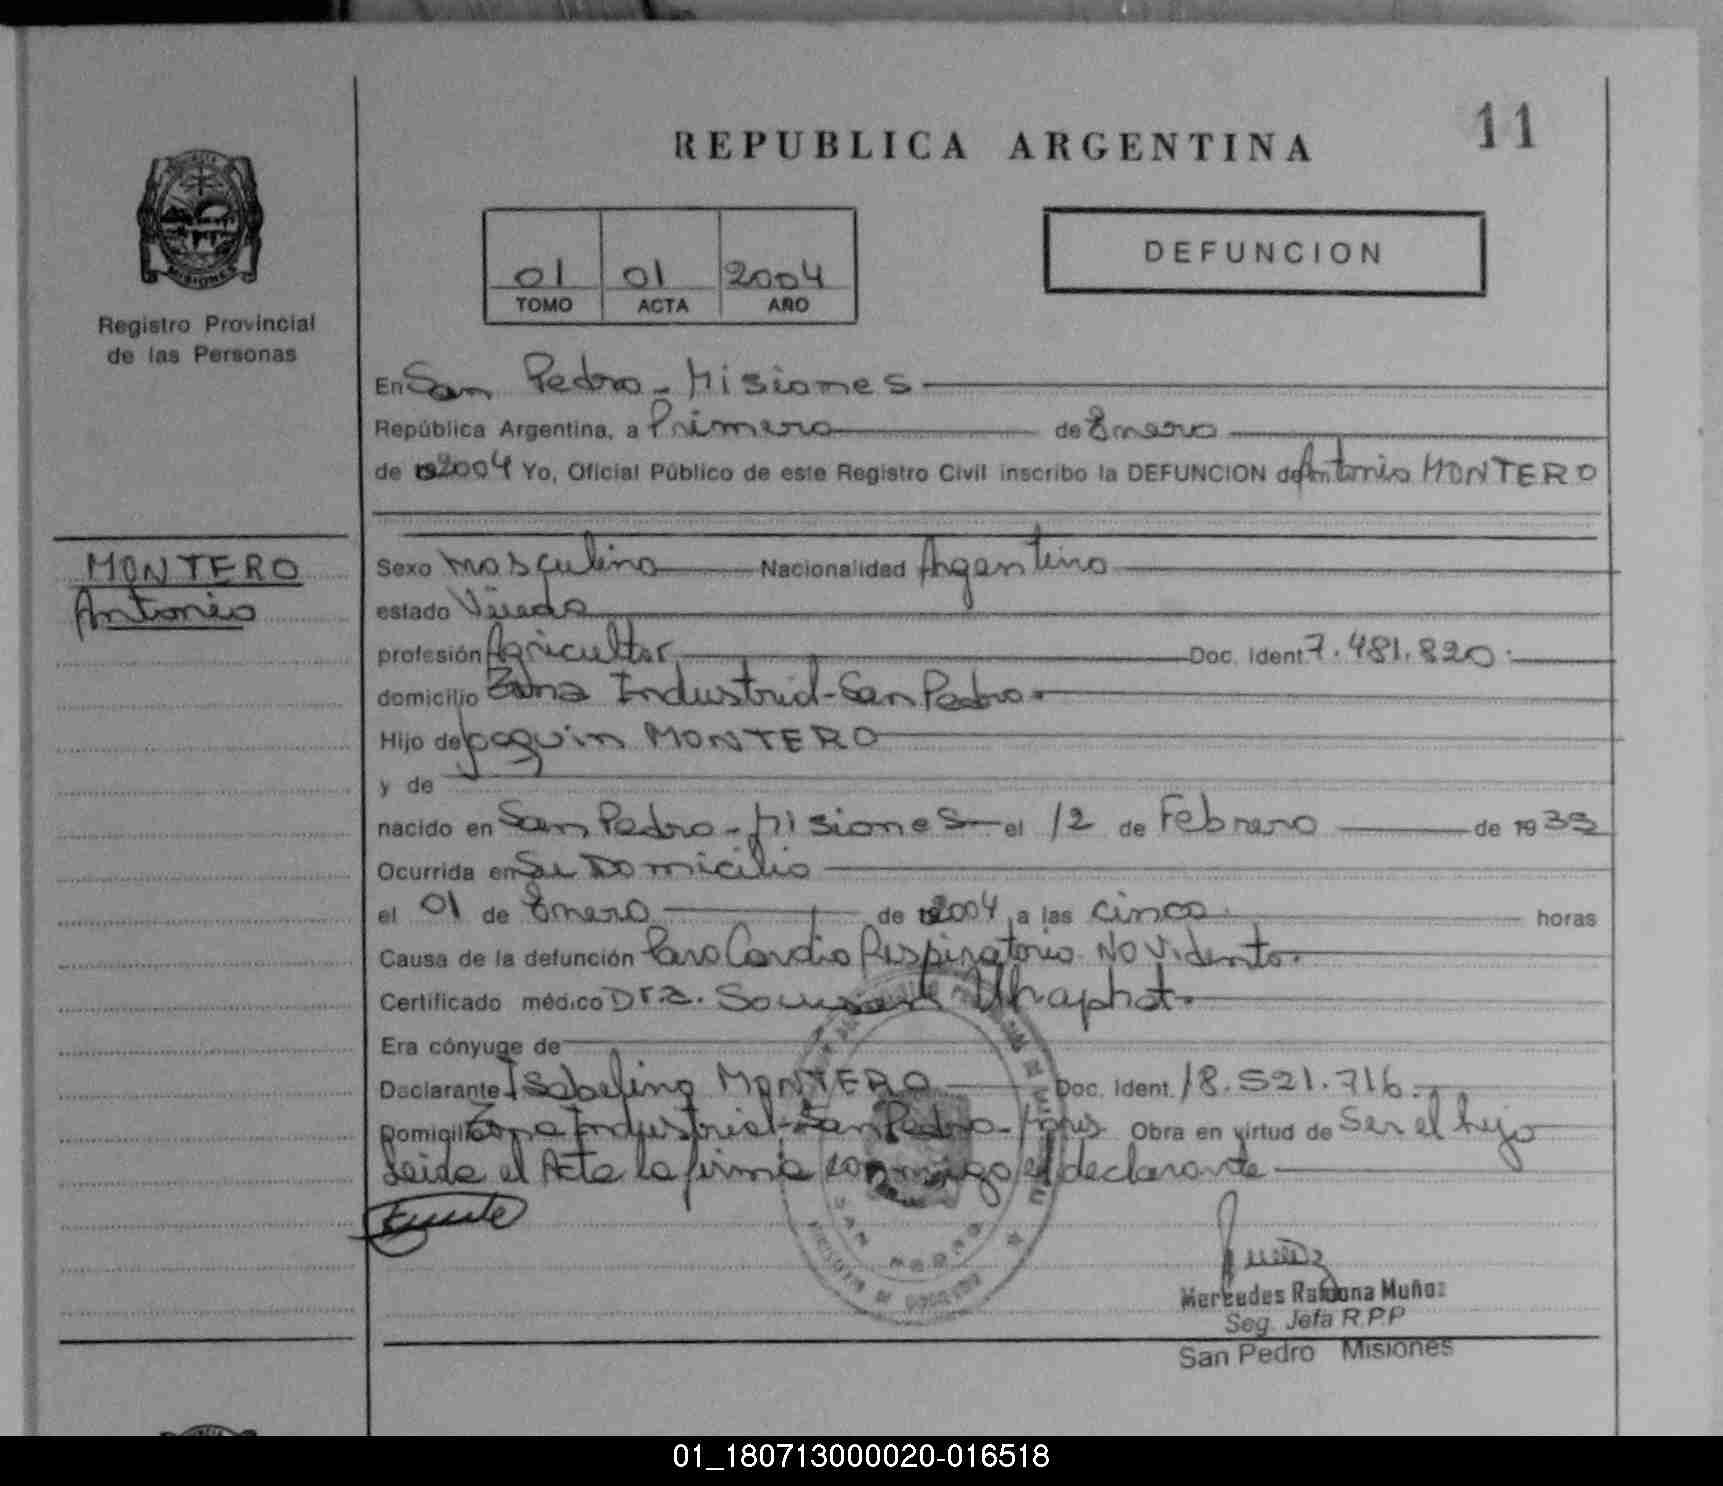 11
REPUBLICA ARGENTINA
MISIONES
Registro Provincial
de las Personas
01 01 2004
TOMO ACTA AÑO
DEFUNCION
En San Pedro - Misiones
República Argentina, a Primero de Enero
de 2004 Yo, Oficial Público de este Registro Civil inscribo la DEFUNCION de Antonio MONTERO
MONTERO
Antonio
Sexo Masculino Nacionalidad Argentino
estado Viudo
profesión Agricultor Doc. Ident 7.481.820.
domicilio Zona Industrial - San Pedro.
Hijo de Joaquin MONTERO
y de
nacido en San Pedro - Misiones el 12 de Febrero de 19
Ocurrida en Su Domicilio
el 01 de Enero de 2004 a las cinco. horas
Causa de la defunción Paro Cardio Respiratorio.
Certificado médico Dr.a.
Era cónyuge de
Declarante Isabelino MONTERO Doc. Ident. 18.521.716.
Domicilio Zona Industrial - San Pedro - Obra en virtud de Ser el hijo
Leida el Acta la firma conmigo el declarante
SAN PEDRO
Mercedes Ramona Muñoz
Seg. Jefa R.P.P
San Pedro Misiones
01_180713000020-016518